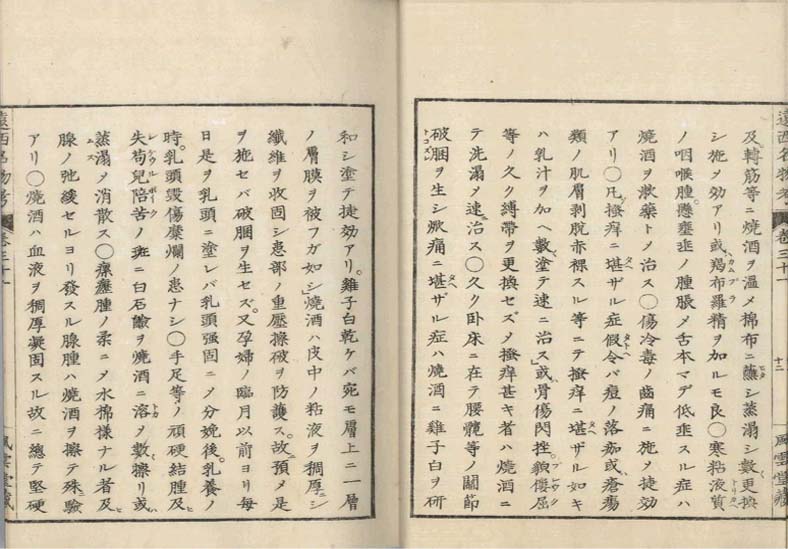 遠西名物考 巻三十一 十二 風雲堂藏
及轉筋等ニ燒酒ヲ温メ棉布ニ蘸シ蒸溻シ數更換
シ施メ効アリ或羯布羅精ヲ加ルモ良○寒粘液質
ノ咽喉腫懸壅垂ノ腫脹メ舌本マデ低垂スル症ハ
燒酒ヲ漱藥トメ治ス○傷冷毒ノ齒痛ニ施メ捷効
アリ○凡搔痒ニ堪ザル症假令バ痘ノ落痂或瘡瘍
類ノ肌膚剥脫赤裸スル等ニテ搔痒ニ堪ザル如キ
ハ乳汁ヲ加ヘ數塗テ速ニ治ス」或骨傷閃挫
等ノ久ク縛帶ヲ更換セズメ搔痒甚キ者ハ燒酒ニ
テ洗溻メ速治ス○久ク卧床ニ在テ腰髖等ノ關節
破䐃ヲ生シ焮痛ニ堪ザル症ハ燒酒ニ雞子白ヲ研
和シ塗テ捷効アリ。雞子白乾ケバ宛モ層上ニ一層
ノ膚膜ヲ被フガ如シ」燒酒ハ皮中ノ粘液ヲ稠厚ニシ
纖維ヲ收固シ患部ノ重壓擦破ヲ防護ス。故ニ預メ是
ヲ施セバ破䐃ヲ生セズ。又孕婦ノ臨月以前ヨリ每
日是ヲ乳頭ニ塗レバ乳頭强固ニメ分娩後。乳養ノ
時。乳頭毀傷糜爛ノ患ナシ○手足等ノ頑硬結腫及
失苟兒陪苦ノ斑ニ白石鹼ヲ燒酒ニ溶メ數擦リ或
蒸溻メ消散ス○瘰癧腫ノ柔ニメ水棉樣ナル者及
腺ノ弛緩セルヨリ發スル腺腫ハ燒酒ヲ擦テ殊驗
アリ○燒酒ハ血液ヲ稠厚凝固スル故ニ總テ堅硬
遠西名物考 巻三十一 風雲堂藏